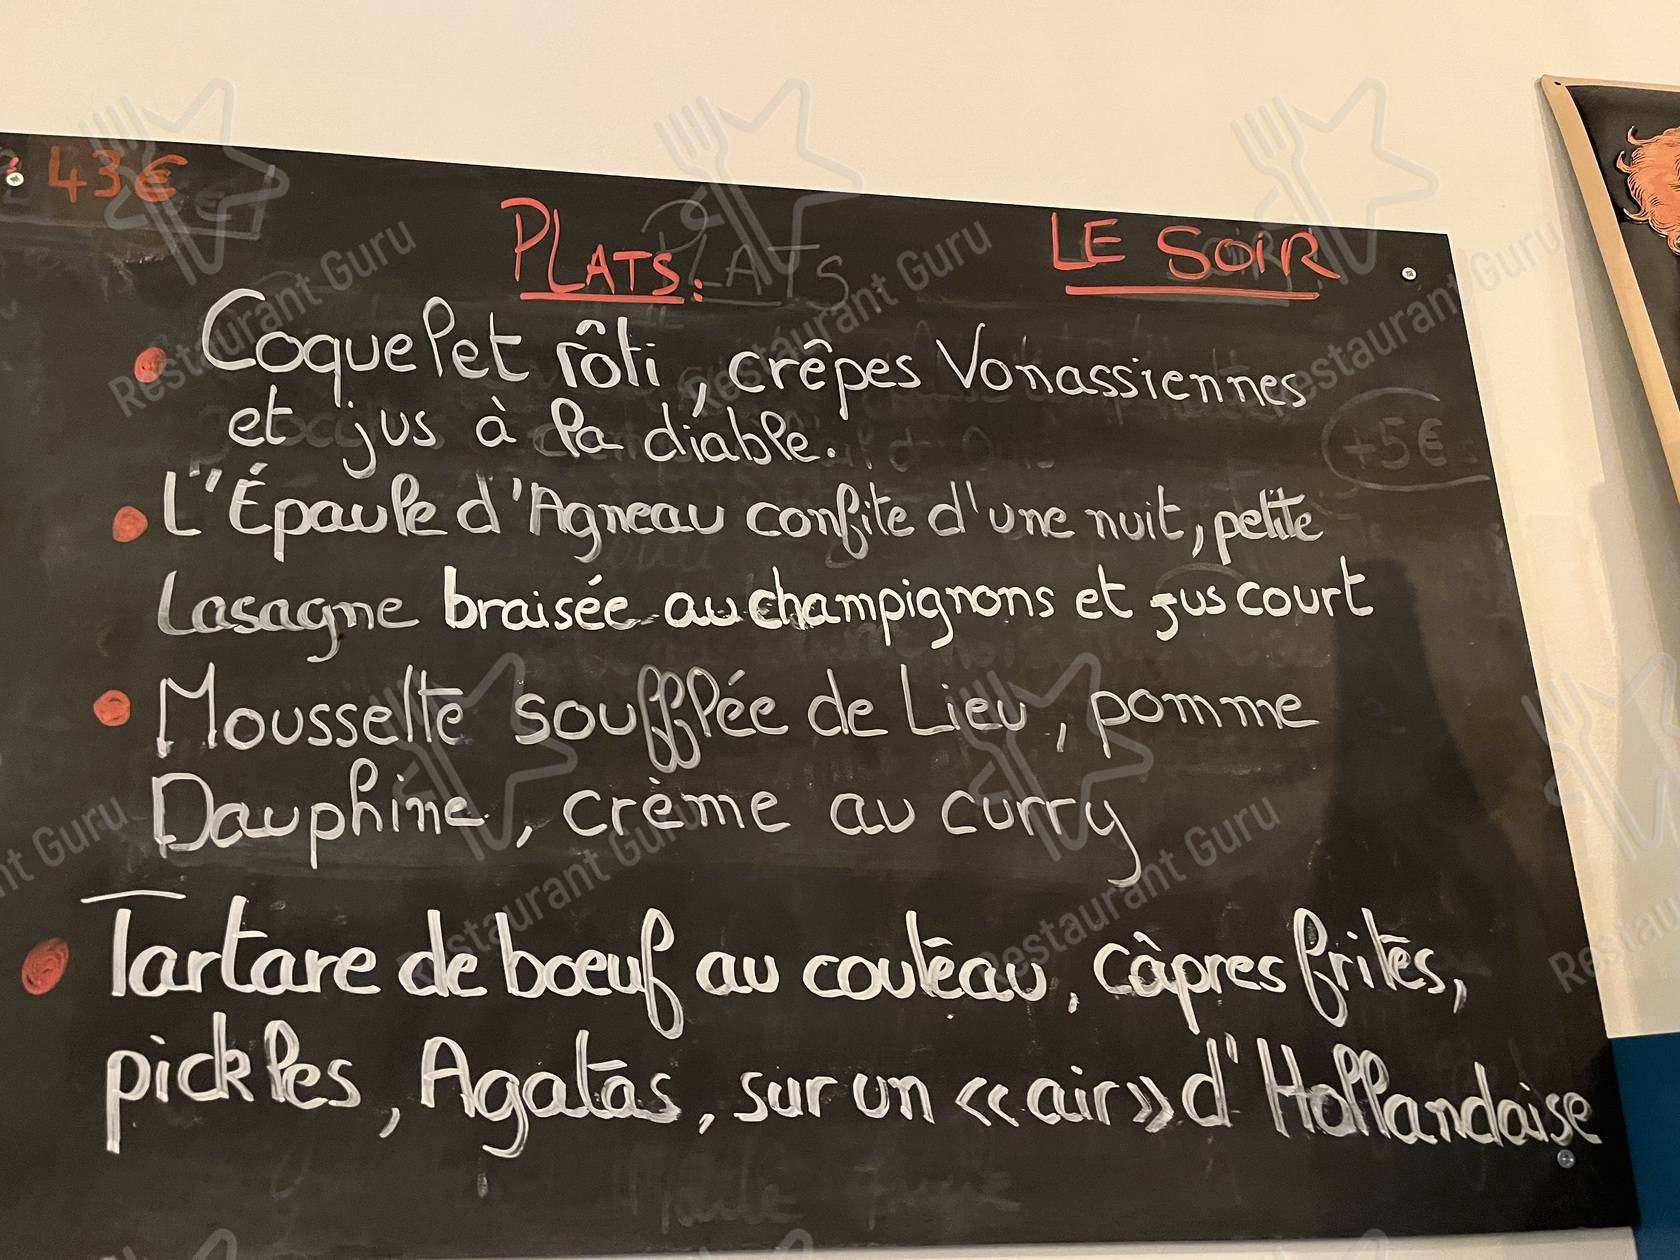 43€
PLATS:
LE SOIR
Coquelet rôti, crêpes Vonassiennes
et jus à la diable.
+5€
L'Épaule d'Agneau confite d'une nuit, petite
Lasagne braisée au champignons et jus court
Mousseltte soufflée de Lieu, pomme
Dauphine, crème au curry
Tartare de boeuf au couteau, câpres frites,
pickles, Agatas, sur un «air» d'Hollandaise
Restaurant Guru